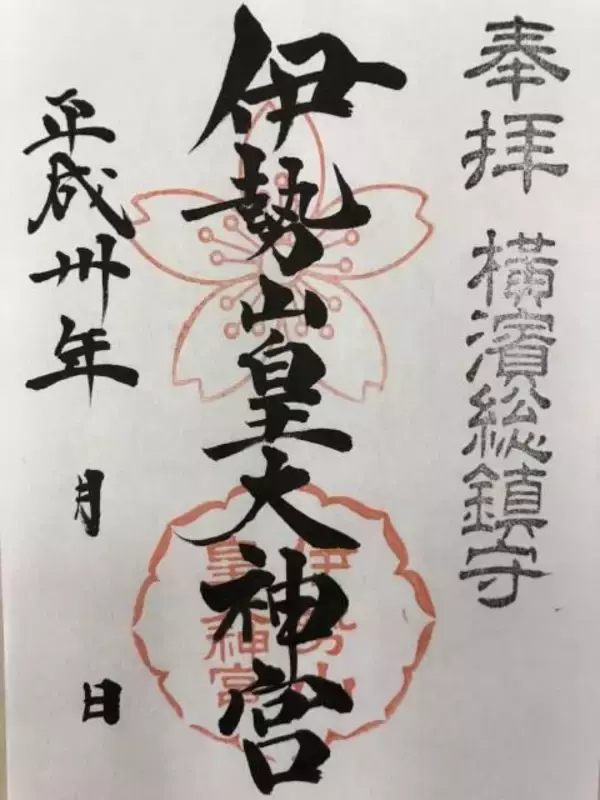 奉拝 横濱総鎮守
伊勢山皇大神宮
伊勢山
皇大神宮
平成卅年 月 日